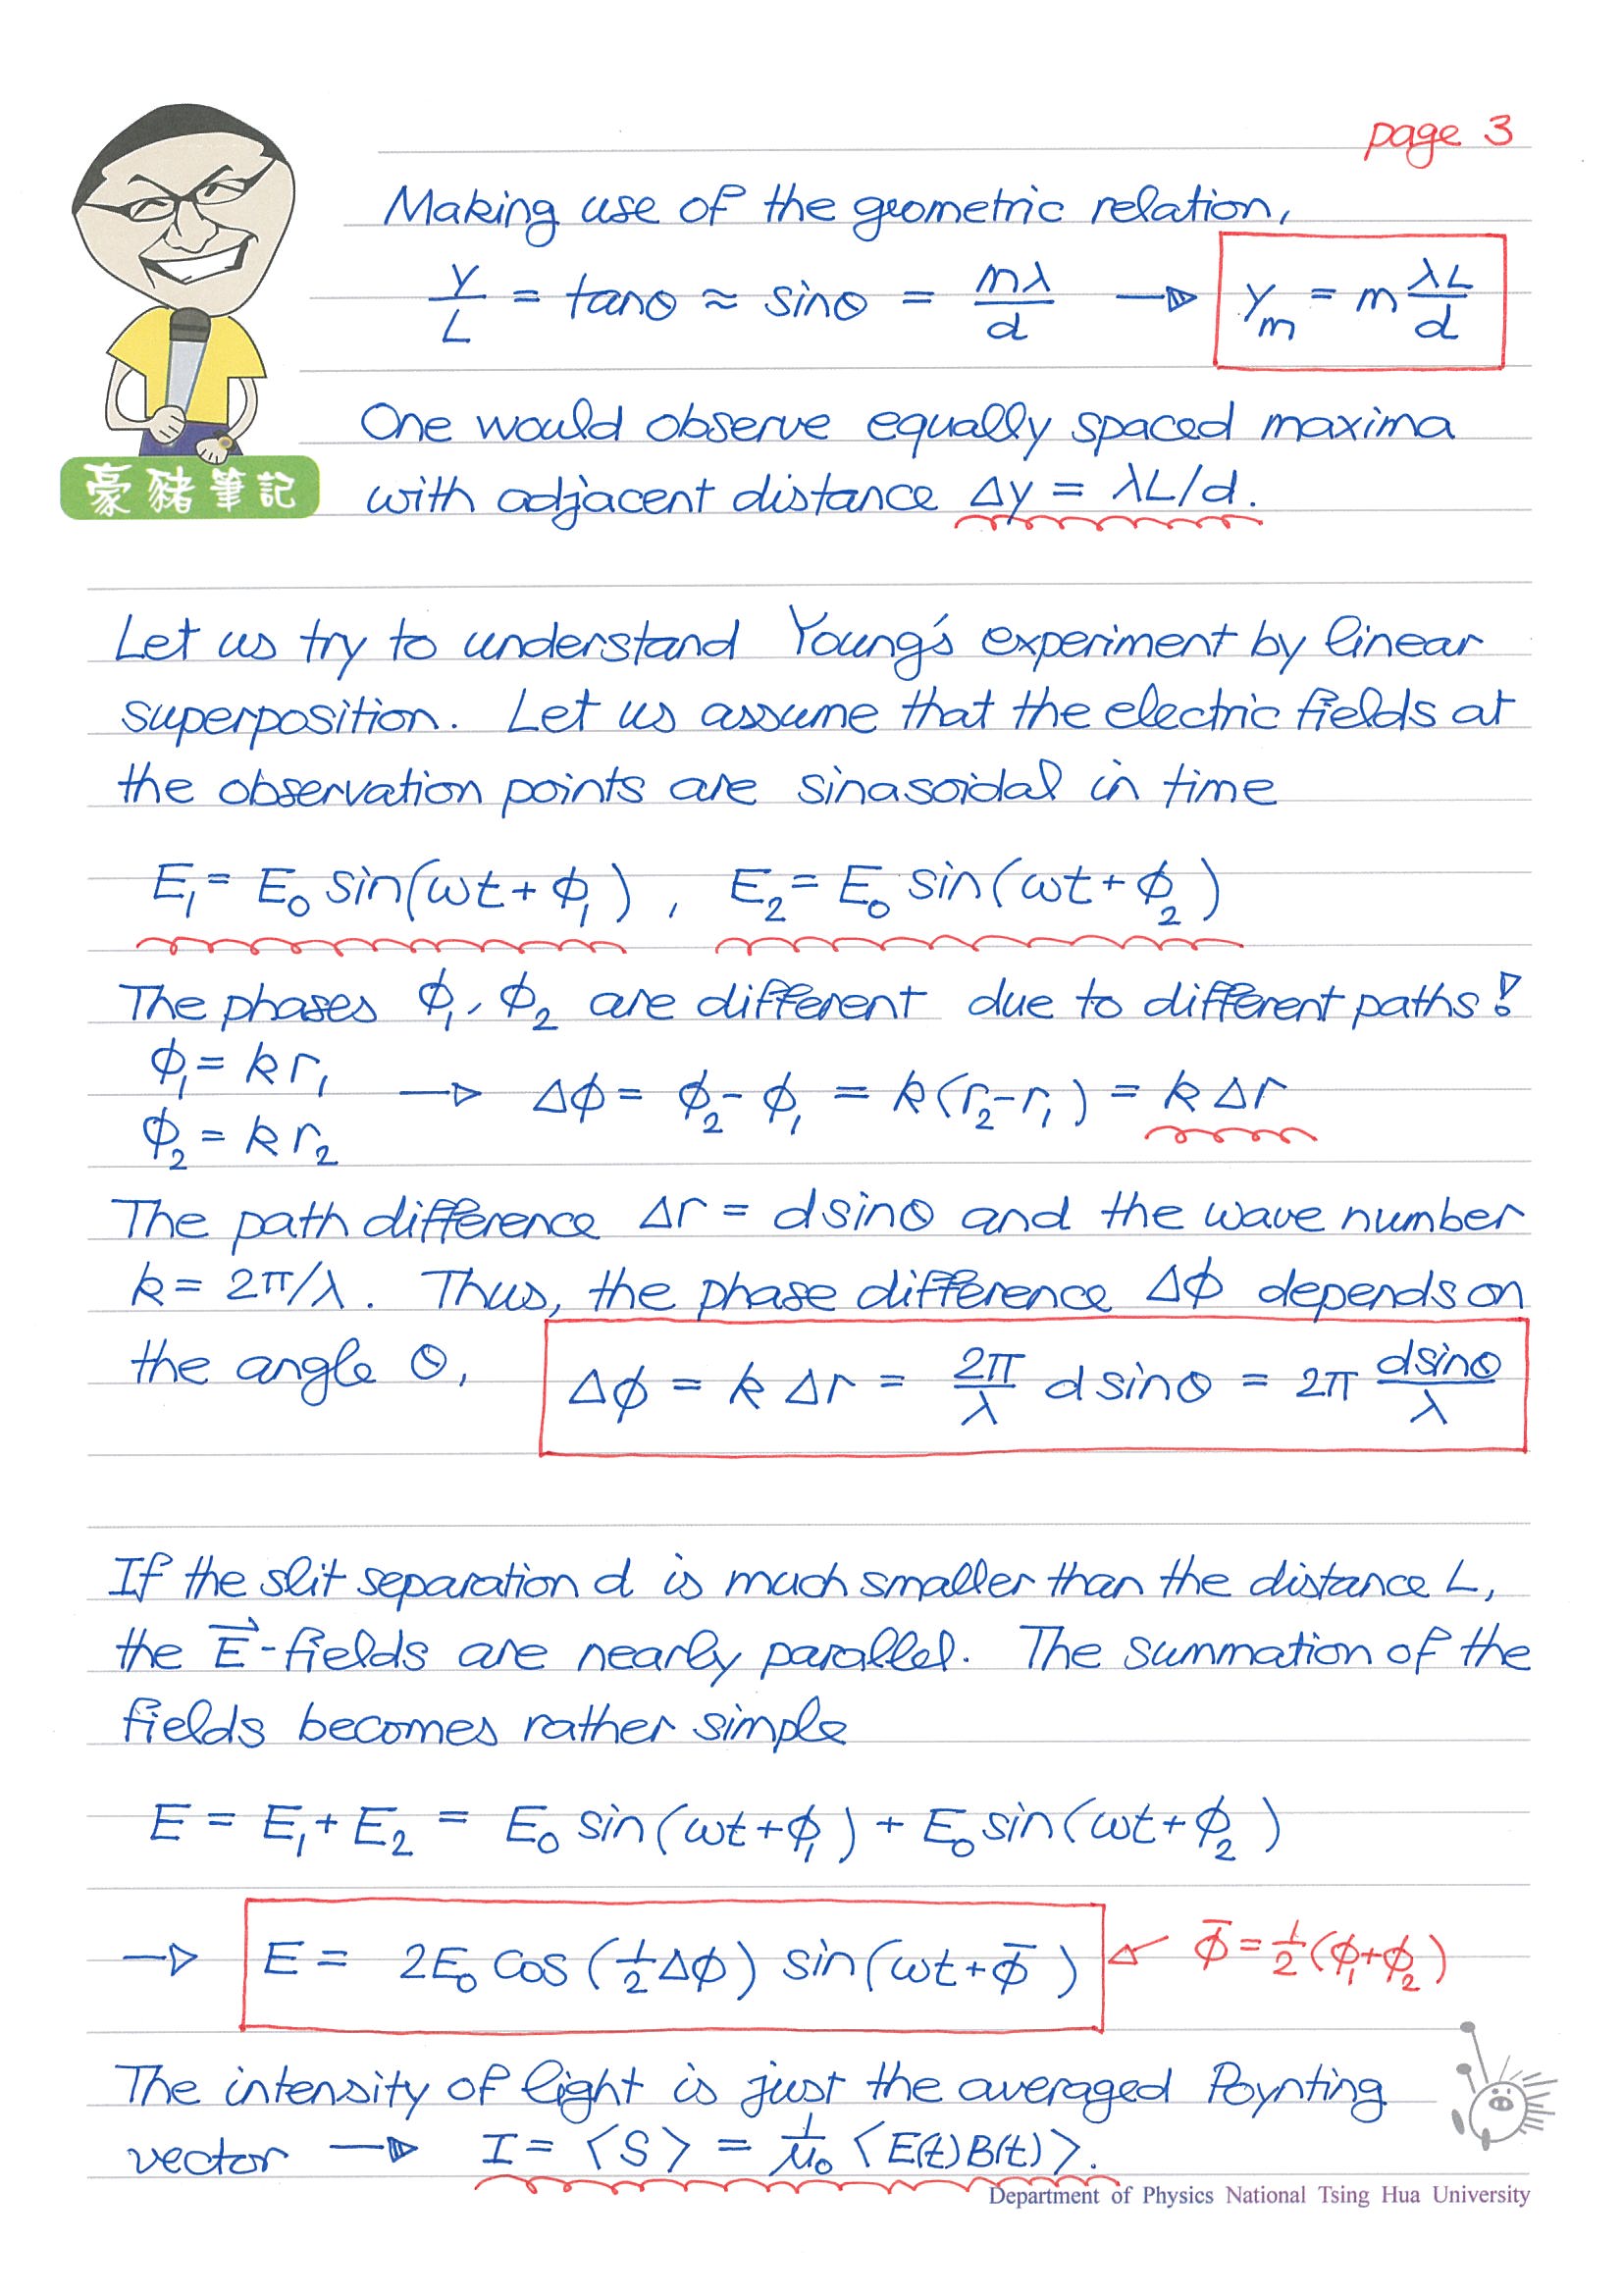 page 3
Making use of the geometric relation,
y/L = tanθ ≈ sinθ = mλ/d → y_m = m λL/d
One would observe equally spaced maxima
with adjacent distance Δy = λL/d.
豪豬筆記
Let us try to understand Young's experiment by linear
superposition. Let us assume that the electric fields at
the observation points are sinasoidal in time
E₁ = E₀ sin(ωt + ϕ₁) , E₂ = E₀ sin(ωt + ϕ₂)
The phases ϕ₁, ϕ₂ are different due to different paths!
ϕ₁ = k r₁
ϕ₂ = k r₂
→ Δϕ = ϕ₂ - ϕ₁ = k(r₂-r₁) = k Δr
The path difference Δr = d sinθ and the wave number
k = 2π/λ. Thus, the phase difference Δϕ depends on
the angle θ, Δϕ = k Δr = 2π/λ d sinθ = 2π d sinθ/λ
If the slit separation d is much smaller than the distance L,
the E⃗-fields are nearly parallel. The summation of the
fields becomes rather simple
E = E₁ + E₂ = E₀ sin(ωt + ϕ₁) + E₀ sin(ωt + ϕ₂)
→ E = 2E₀ cos(½Δϕ) sin(ωt + ϕ̄) ← ϕ̄ = ½(ϕ₁+ϕ₂)
The intensity of light is just the averaged Poynting
vector → I = ⟨S⟩ = 1/μ₀ ⟨E(t)B(t)⟩.
Department of Physics National Tsing Hua University